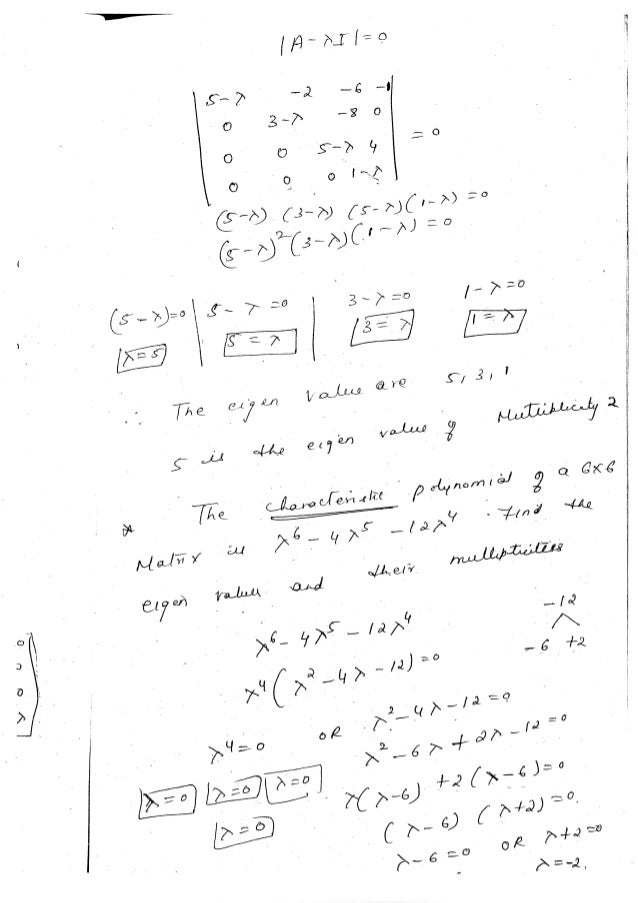 |A-λI|=0
5-λ -2 -6 -1
0 3-λ -8 0
0 0 5-λ 4 = 0
0 0 0 1-λ
(5-λ) (3-λ) (5-λ)(1-λ) = 0
(5-λ)²(3-λ)(1-λ) = 0
(5-λ)=0 | 5-λ=0 | 3-λ=0 1-λ=0
λ=5 5=λ 3=λ 1=λ
∴ The eigen value are 5, 3, 1
5 is the eigen value of Mutliblicaty 2
* The characteristic polynomial of a 6x6
Matrix is λ⁶-4λ⁵-12λ⁴. Find the
eigen values and their multipticities
λ⁶-4λ⁵-12λ⁴
λ⁴(λ²-4λ-12)=0
-12
-6 +2
λ⁴=0 OR λ²-4λ-12=0
λ²-6λ+2λ-12=0
λ=0 λ=0 λ=0 λ(λ-6)+2(λ-6)=0
λ=0 (λ-6) (λ+2)=0.
λ-6=0 OR λ+2=0
λ=-2.
0
0
λ